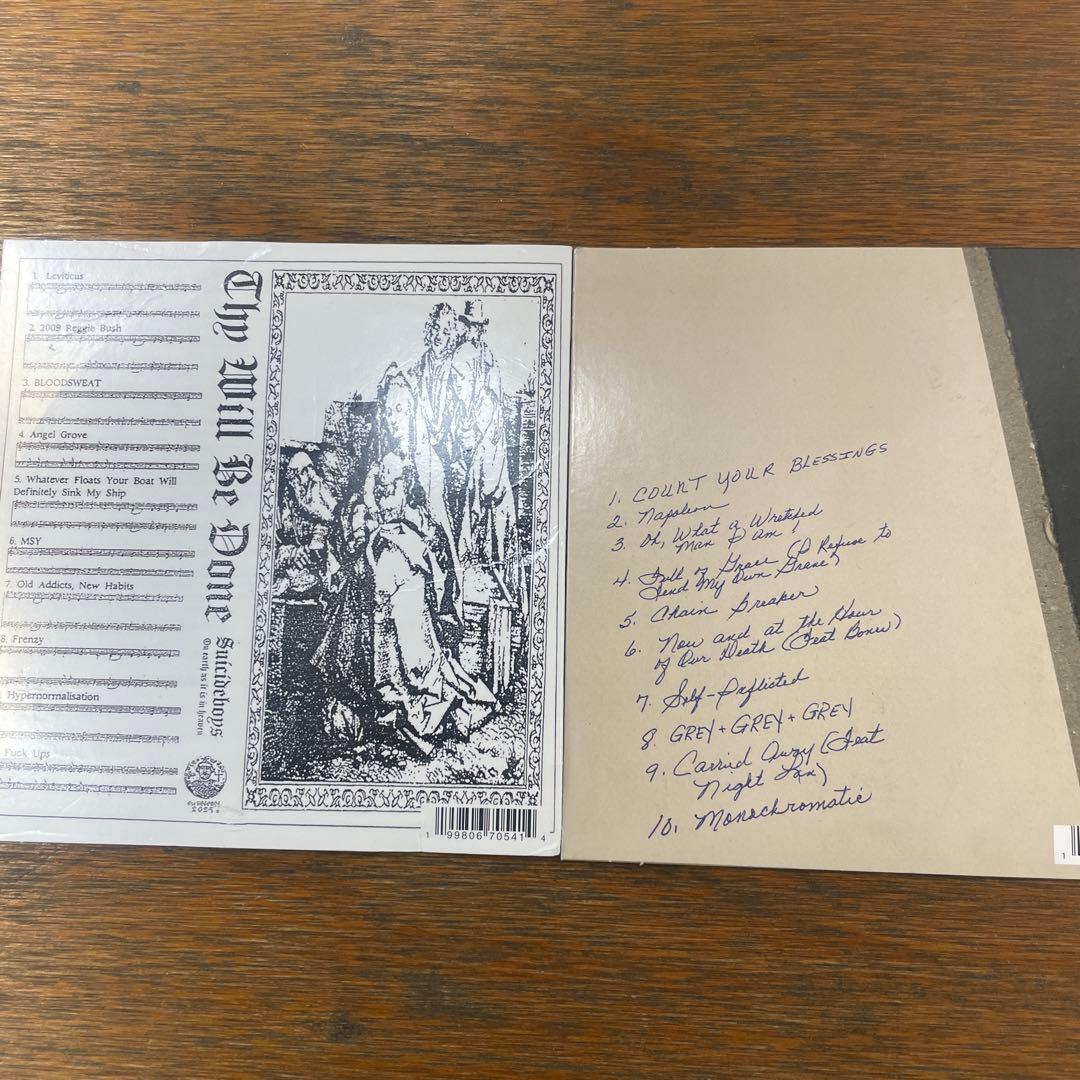 1. Leviticus
2. 2009 Reggie Bush
3. BLOODSWEAT
4. Angel Grove
5. Whatever Floats Your Boat Will
Definitely Sink My Ship
6. MSY
7. Old Addicts, New Habits
8. Frenzy
Hypernormalisation
Fuck Ups
Thy Will Be Done
Suicideboys
On earth as it is in heaven
2025
1 99806 70541 4
1. COUNT YOUR BLESSINGS
2. Napoleon
3. Oh, What a Wretched
Man I Am!
4. Full of Grace (I Refuse to
Tend My Own Grave)
5. Chain Breaker
6. Now and at the Hour
of Our Death (Feat Bones)
7. Self-Inflicted
8. GREY+GREY+GREY
9. Carried Away (Feat
Night Lan)
10. Monochromatic
1